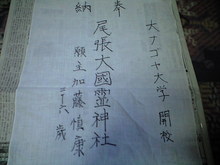 奉納
大ナゴヤ大学 開校
尾張大國霊神社
願主 加藤慎康
三十六歳